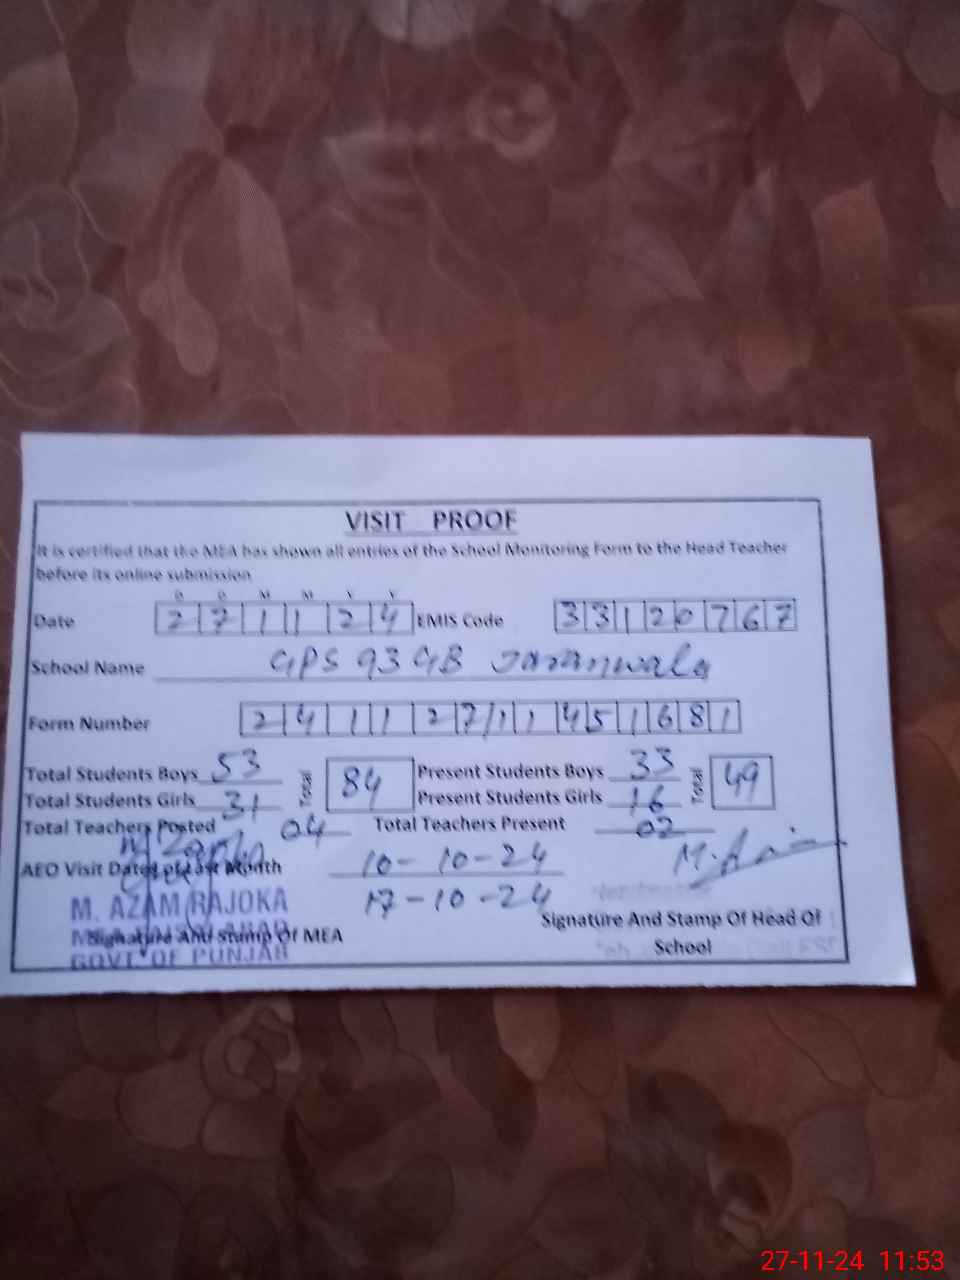 VISIT PROOF
It is certified that the MEA has shown all entries of the School Monitoring Form to the Head Teacher
before its online submission
D D M M Y Y
Date 271124 EMIS Code 33120767
School Name GPS 93 GB Jaranwala
Form Number 24112711451681
Total Students Boys 53 Total 84 Present Students Boys 33 Total 49
Total Students Girls 31 Present Students Girls 16
Total Teachers Posted 04 Total Teachers Present 02
AEO Visit Dates of Last Month 10-10-24
17-10-24
M. AZAM RAJOKA
Signature And Stamp Of MEA
GOVT. OF PUNJAB
Signature And Stamp Of Head Of
School
27-11-24 11:53